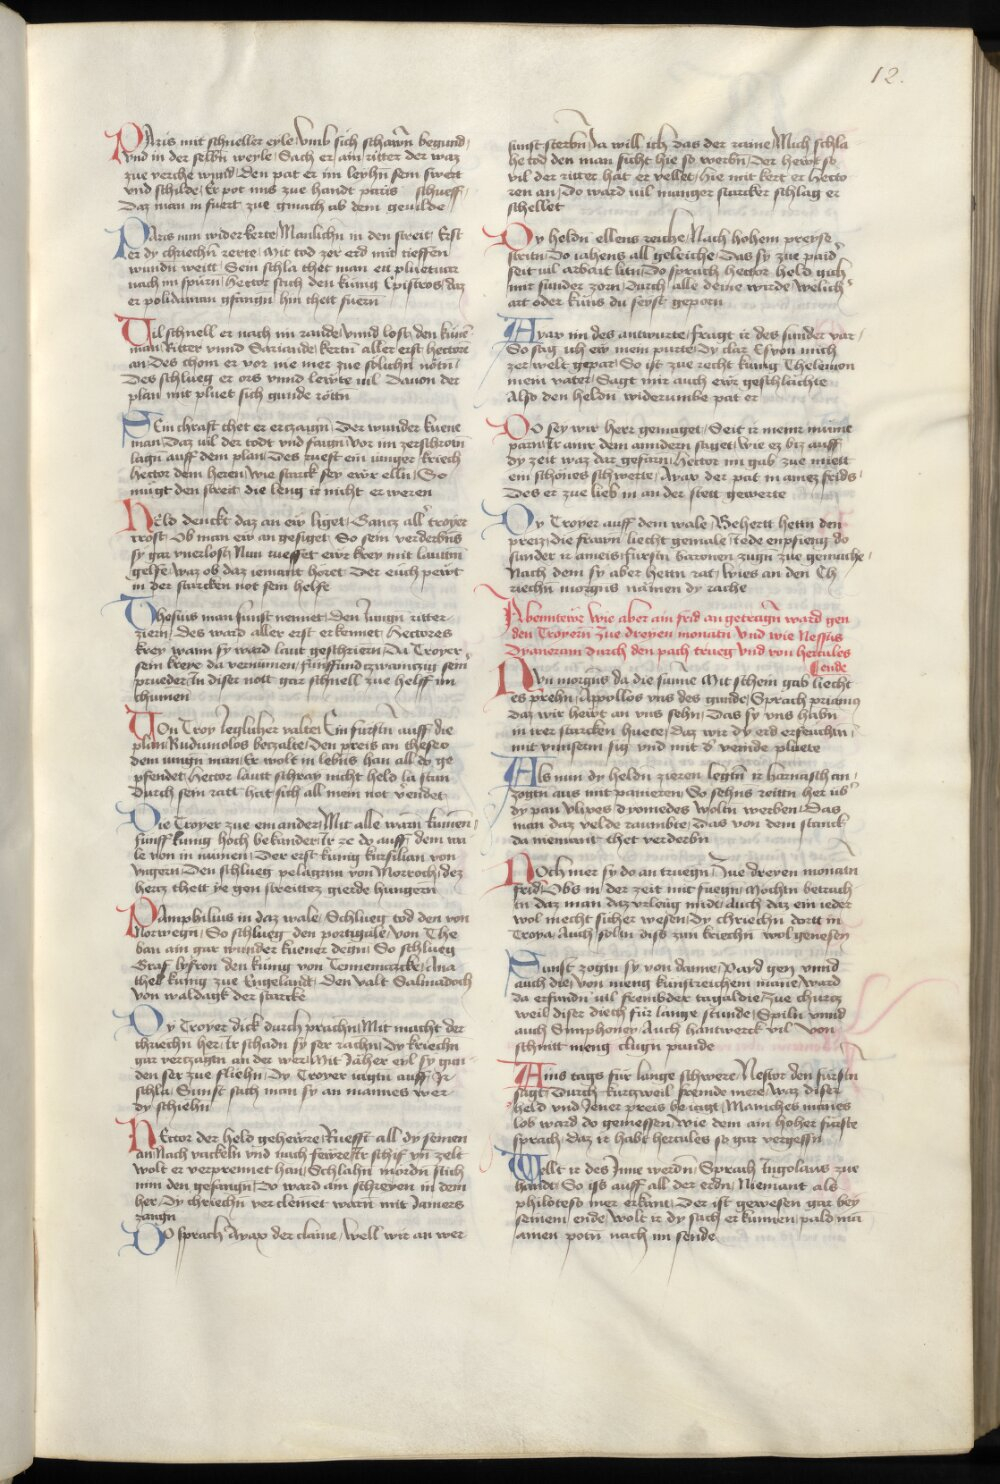 12.
PAris mit schneller eyle / Vmb sich schawn begund /
vnd in der selbn weyle / Sach er ain ritter der waz
zue verche wund / Den pat er im leyhn sein swert
vnd schilde / Er pot ims zue handt paris schueff /
Daz man in fuert zue gmach ab dem gevilde /
PAris nun widerkerte / Manlichn in den streit / Erst
er dy chriechn rerte / Mit tod zer erd mit tieffen
wundn weitt / Sein schla thet man en pluetuar
nach im spurn / Hector stach den kunig Epistros / daz
er polidaman gfangn hin thett fuern
VIl schnell er nach im rande / Vnnd lost den kuen
man / Ritter vnnd Sariande / kertn aller erst hectorn
an / Des chom er vor nie mer zue solichn nötn /
Des schlueg er ors vnnd lewte vil / Dauon der
plan mit pluet sich gunde rottn
SEin chrafft thet er erczaign / Der wunder kuene
man / Daz vil der todt vnd faign / vor im zerschrotn
lagn auff dem plan / Des ruest ein iunger kriech
Hector dem heren / wie starck sey ewr elln / So
mugt den streit die leng ir nicht er weren
HEld denckt daz an ew liget / Gantz aller troyer
trost / Ob man ew an gesiget / So sein verderbns
sy gar vnerlost / Nun rueffet ewr krey mit lauttm
gelfe / waz ob daz iemant höret / Der euch pewt
in der starcken not sein helfe
THeseus man sunst nennet / Den Jungn ritter
ziern / Des ward aller erst erkennet / Hectores
krey wann sy ward laut geschriern / Da Troyer
sein kreye da vernamen / funffund zwaintzig sein
prueder / In diser nott gar schnell zue helff im
chumen
VOn Troy Jeglicher valte / Ein furstn auff die
plan / Rudimolos betzalte / Den preis an theseo
dem iungn man / Er wolt in lebns han all do ge
pfendet / Hector lautt schray nicht held la stan
Durch sein ratt hat sich all mein not verendet
DIe Troyer zue einander / Mit alle warn kumen /
funff kunig hoch bekander / Ir ze do auff dem wa
le von in numen / Der erst kunig kursilian von
vngern / Den schlueg pelagram von Morroch / dez
hercz thett ye gen streittez gierde hungern
PAmphilius in daz wale / Schlueg tod den von
Norwegn / So schlueg den portigale / von The
ban ain gar wunder kuener degn / So schlueg
Graf lysron den kunig von Tennemarcke / Ana
thell kunig zue Engelandt / Den valt Salmadoch
von waldagk der starcke
DY Troyer dick durch prachn / Mit macht der
chriechn her / Ir schadn sy ser rachn / Dy kriechn
gar vertzagtn an der wer / Mit Jäher eyl sy gun
den ser zue fliehn / Dy Troyer iagtn auff Ir
schla / Sunst sach man sy an mannes wer
dy schiehn
HEctor der held gehewre / Ruefft all dy seinen
an / Nach vackeln vnd nach fewre / Er schif vn zelt
wolt er verprennet han / Schlahn mordn stich
nim den gefangn / Do ward ain schreyen in dem
her / Dy chriechn verclemet warn mit Jamers
zangn
DO sprach Ayax der claine / Well wir an wer
sunst sterbn / Ja will ich das der raine / Mich schla
he tod den man sicht hie so werbn / Der hewt so
vil der ritter hat er vellet / Hie mit kert er Hecto
ren an / Do ward vil manger starcker schlag er
schellet
DY heldn ellens reiche / Nach hohem preyse
stritn / Do iahens all geleiche / Das sy zue paid
seit vil arbait litn / Do sprach hector held guch
mir sunder zorn / Durch alle deine wirde / Welich
art oder küns du seyst geporn
AYax im des antwurte / fragt ir des sunder var /
So sag ich ew mein purte / Dy clar Esyon mich
zer welt gepar / So ist zue recht kunig Thelemon
mein vater / Sagt mir auch ewr geschlächte
Also den heldn widerumbe pat er
DO sey wir herr gemaget / Seit ir meinr müme
parn / Er amr dem anndern saget / wie ez biz auff
dy zeit waz dar gefarn / Hector im gab zue miett
ein schones schwerte / Ayax der pat in ainez frids /
Des er zue lieb in an der stett gewerte
DY Troyer auff dem wale / Behertt hettn den
preiz / die frawn liecht gemale / Jede enpfieng do
sunder ir ameis / fursin baronen zugn zue gemache /
Nach dem sy aber hettn rat / Wies an den Ch
riechn morgns namen dy rache
Abenntewr Wie aber ain frid an getragn ward gen
den Troyern Zue dreyen monatn Vnd wie Nessus
Dyaneram durch den pach trueg Vnd von hercules
ende
NVn morgns da die sunne / Mit schein gab liecht
es prehn / Appollos vns des gunde / Sprach priamus
daz wir hewt an vns sehn / Das sy vns habn
in irer starcken huete / Daz wir dy erd erfeuchtn /
mit vnnserm sig vnd mit der veinde pluete
ALs nun dy heldn zieren / legtn ir harnasch an /
zogtn aus mit panieren / So sehns reittn her vbr
dy pan / Vlixes dyomedes woltn werben / Das
man daz velde raumbte / Das von dem stanck
da niemant thet verderbn
NOch mer sy do an truegn / Zue dreyen monatn
frid / Obs in der zeit mit fuegn / Mochtn betrach
tn daz man daz vrleug midt / Auch daz ein ieder
wol mecht sicher wesen / Dy chriechn dortt in
Troya / Auch soltn dise zun kriechn wol genesen
SUnst zogtn sy von danne / Payd gen vnnd
auch die / von meng kunstreichem manne / ward
da erfundn vil frembder tagaldie / Zue churcz
weil diser diech für lange stunde / Spiln vnnd
auch Simphoney / Auch hantwerck vil von
schnitt meng clugn punde
AIns tags für lange schwere / Nestor den fürstn
sagt / Durch kurtzweil fremde mere / Waz diser
held vnd Jener preis be iagt / Maniches mannes
lob ward do gemessen / wie dem ain hoher furste
sprach / daz ir habt hercules so gar vergessn
WEllt ir des Jnne werdn / Sprach Jngolaus zue
handt / So ist auff all der erdn / Niemant als
philoteto mer erkant / Der ist gewesen gar bey
seinem ende / wolt ir dy sach er kunnen / pald mä
amen potn nach im sende